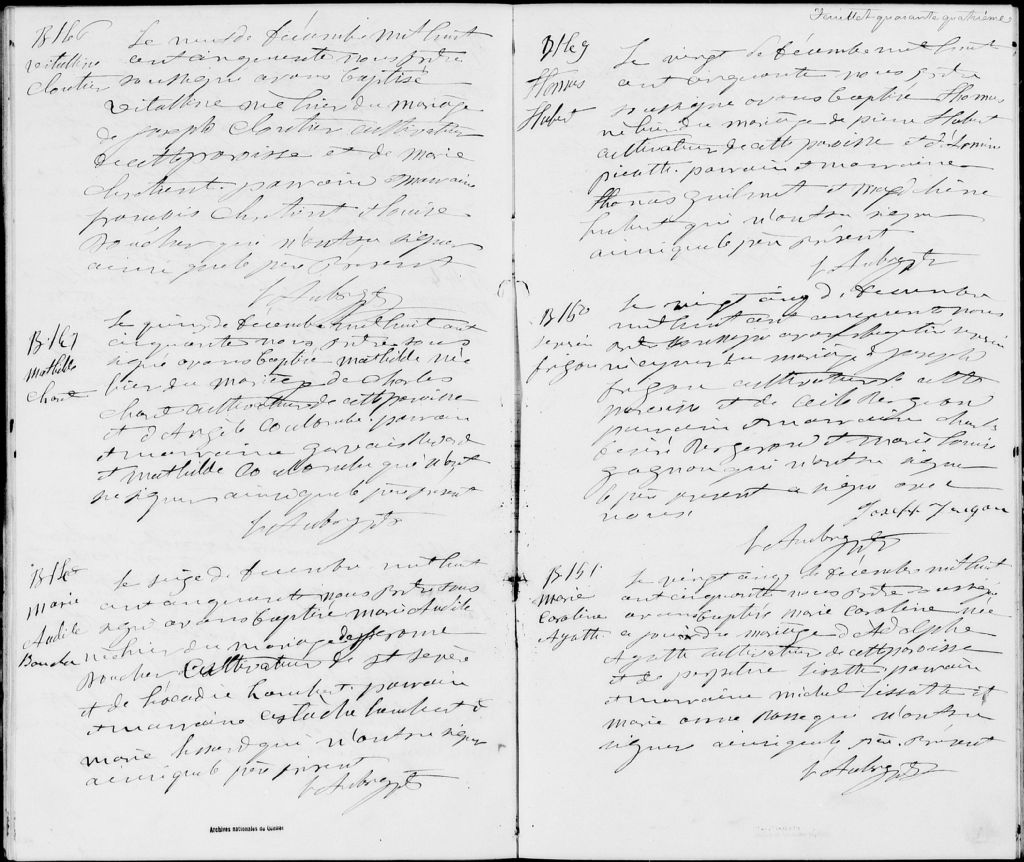 B146
Vitaline
Cloutier
Le neuf de décembre mil huit
cent cinquante nous prêtre
soussigné avons baptisé
Vitaline née hier du mariage
de Joseph Cloutier cultivateur
de cette paroisse et de Marie
Chrétient. parrain et marraine
francois Chrétient et Louise
Boucher qui n'ont su signer
ainsi que le père présent
B147
Mathilde
Charet
Le quinze de décembre mil huit cent
cinquante nous prêtre sous
signé avons baptisé Mathilde née
hier du mariage de Charles
Charet cultivateur de cette paroisse
et d'Angèle Coulombe parrain
et marraine Gervais
et Mathilde Coulombe qui n'ont
su signer ainsi que le père présent
B148
Marie
Audile
Boucher
Le seize de décembre mil huit
cent cinquante nous prêtre sous
signé avons baptisé Marie Audile
née hier du mariage de Jerome
Boucher cultivateur de St Sevère
et de Leocadie Lambert. parrain
et marraine Eustache Lambert et
Marie qui n'ont su signer
ainsi que le père présent
Archives nationales du Québec
Feuillet quarante quatrième
B149
Thomas
Hubert
Le vingt de décembre mil huit
cent cinquante nous prêtre
soussigné avons baptisé Thomas
né hier du mariage de pierre Hubert
cultivateur de cette paroisse et d'
parrain et marraine
Thomas Guilmet et
hubert qui n'ont su signer
ainsi que le père présent
B150
severin
frigon
Le vingt cinq de décembre
mil huit cent cinquante nous
prêtre soussigné avons baptisé severin
né du mariage de Joseph
frigon cultivateur de cette
paroisse et de Cecile Bergeron
parrain et marraine Charles
Désiré Bergeron et Marie Louise
gagnon qui n'ont su signer
le père présent a signé avec
nous.
Joseph Frigon
B151
Marie
Caroline
Ayotte
Le vingt cinq de décembre mil huit
cent cinquante nous prêtre soussigné
avons baptisé Marie Caroline née
du mariage d'Adolphe
Ayotte cultivateur de cette paroisse
et de parrain
et marraine Michel et
Marie Anne qui n'ont su
signer ainsi que le père présent